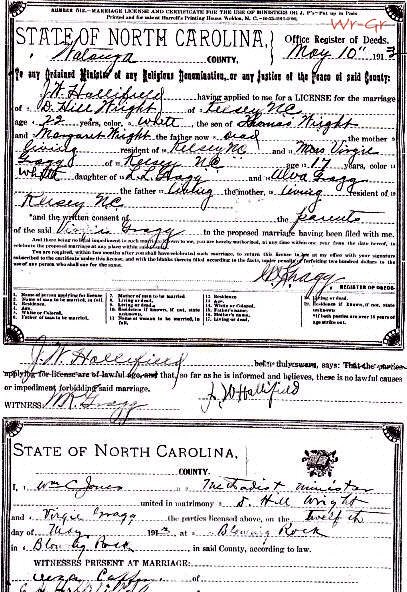 NUMBER 270.—MARRIAGE LICENSE AND CERTIFICATE FOR THE USE OF MINISTERS
Printed and for sale at Harrell's Printing House Weldon, N. C.
Wr-Gr
STATE OF NORTH CAROLINA,
Office Register of Deeds.
Watauga COUNTY. May 10" 191
To any Ordained Minister of any Religious Denomination, or any Justice of the Peace of said County:
J. W. Hallifield having applied to me for a LICENSE for the marriage
of D. Hill Wright of Kelsey N.C.
age 22 years, color White the son of Thomas Wright
and Margaret Wright the father now Dead the mother
Living resident of Kelsey N.C. and Miss Virgie
Gragg of Kelsey N.C. age 17 years, color
White daughter of L. L. Gragg and Alva Gragg
the father Living the mother, Living resident of
Kelsey N.C.
*and the written consent of the Parents
of the said Virginia Gragg to the proposed marriage having been filed with me.
And there being no legal impediment to such marriage known to me, you are hereby authorized, at any time within one year from the date hereof, to
celebrate the proposed marriage at any place within the said county.
You are required, within two months after you shall have celebrated such marriage, to return this license to me at my office with your signature
subscribed to the certificate under this license, and with the blanks therein filled according to the facts, under penalty of forfeiting two hundred dollars to the
use of any person who shall sue for the same.
W R Gragg
REGISTER OF DEEDS
1. Name of person applying for license
2. Name of man to be married, in full.
3. Residence
4. Age.
5. White or Colored.
6. Father of man to be married.
7. Mother of man to be married.
8. Living or dead.
9. Living or dead.
10. Residence of parents, if not, state unknown.
11. Name of woman to be married, in full.
12. Residence
13. Age
14. White or Colored.
15. Father's name.
16. Mother's name.
17. Living or dead.
18. Living or dead.
19. Residence if known, if not, state unknown
J. W. Hallifield being duly sworn, says: That the parties
applying for license are of lawful age, and that, so far as he is informed and believes, there is no lawful causes
or impediment forbidding said marriage. J. W Hallifield
WITNESS W R Gragg
STATE OF NORTH CAROLINA,
COUNTY.
I, Wm C Jones a Methodist minister
united in matrimony D. Hill Wright
and Virgie Gragg the parties licensed above, on the twelfth
day of May 191 at Blowing Rock
in Blowing Rock in said County, according to law.
WITNESSES PRESENT AT MARRIAGE:
of